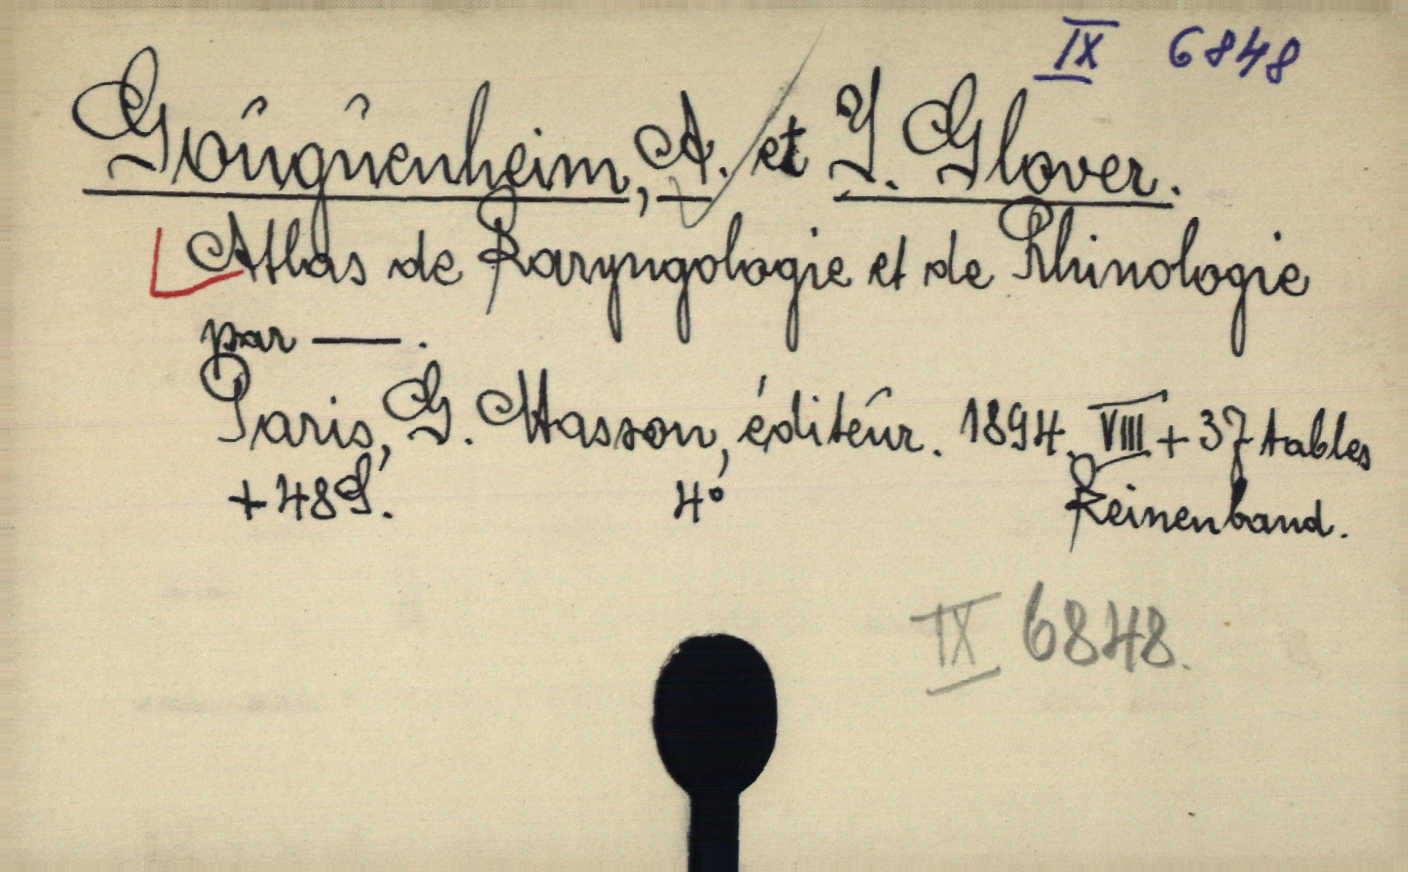 IX 6848
Gouguenheim, A. et J. Glover.
Atlas de Laryngologie et de Rhinologie
par —.
Paris, G. Masson, éditeur. 1894. VIII + 37 tables
+ 48 S. 4° Leinenband.
IX 6848.